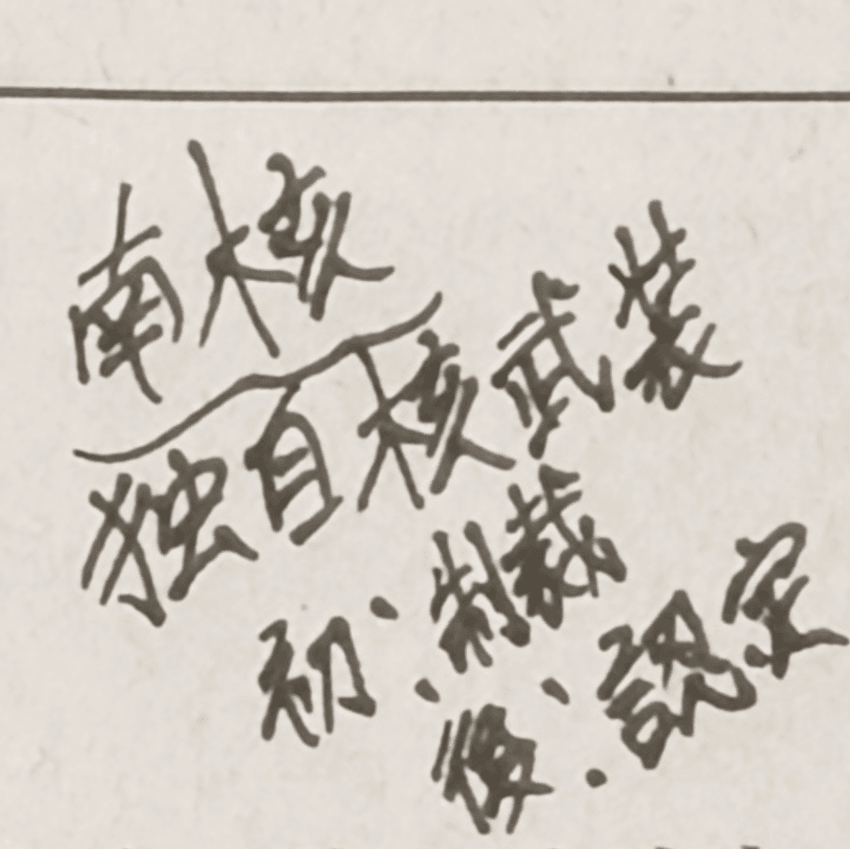 南核
独自核武装
初:制裁
後:認定